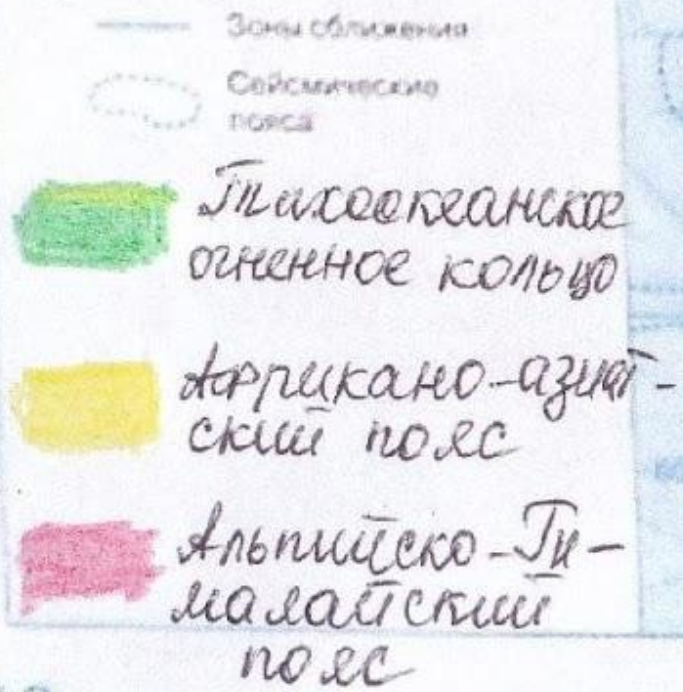 Зоны сближения
Сейсмические
пояса
Тихоокеанское
огненное кольцо
Африкано-азиат-
ский пояс
Альпийско-Ги-
малайский
пояс